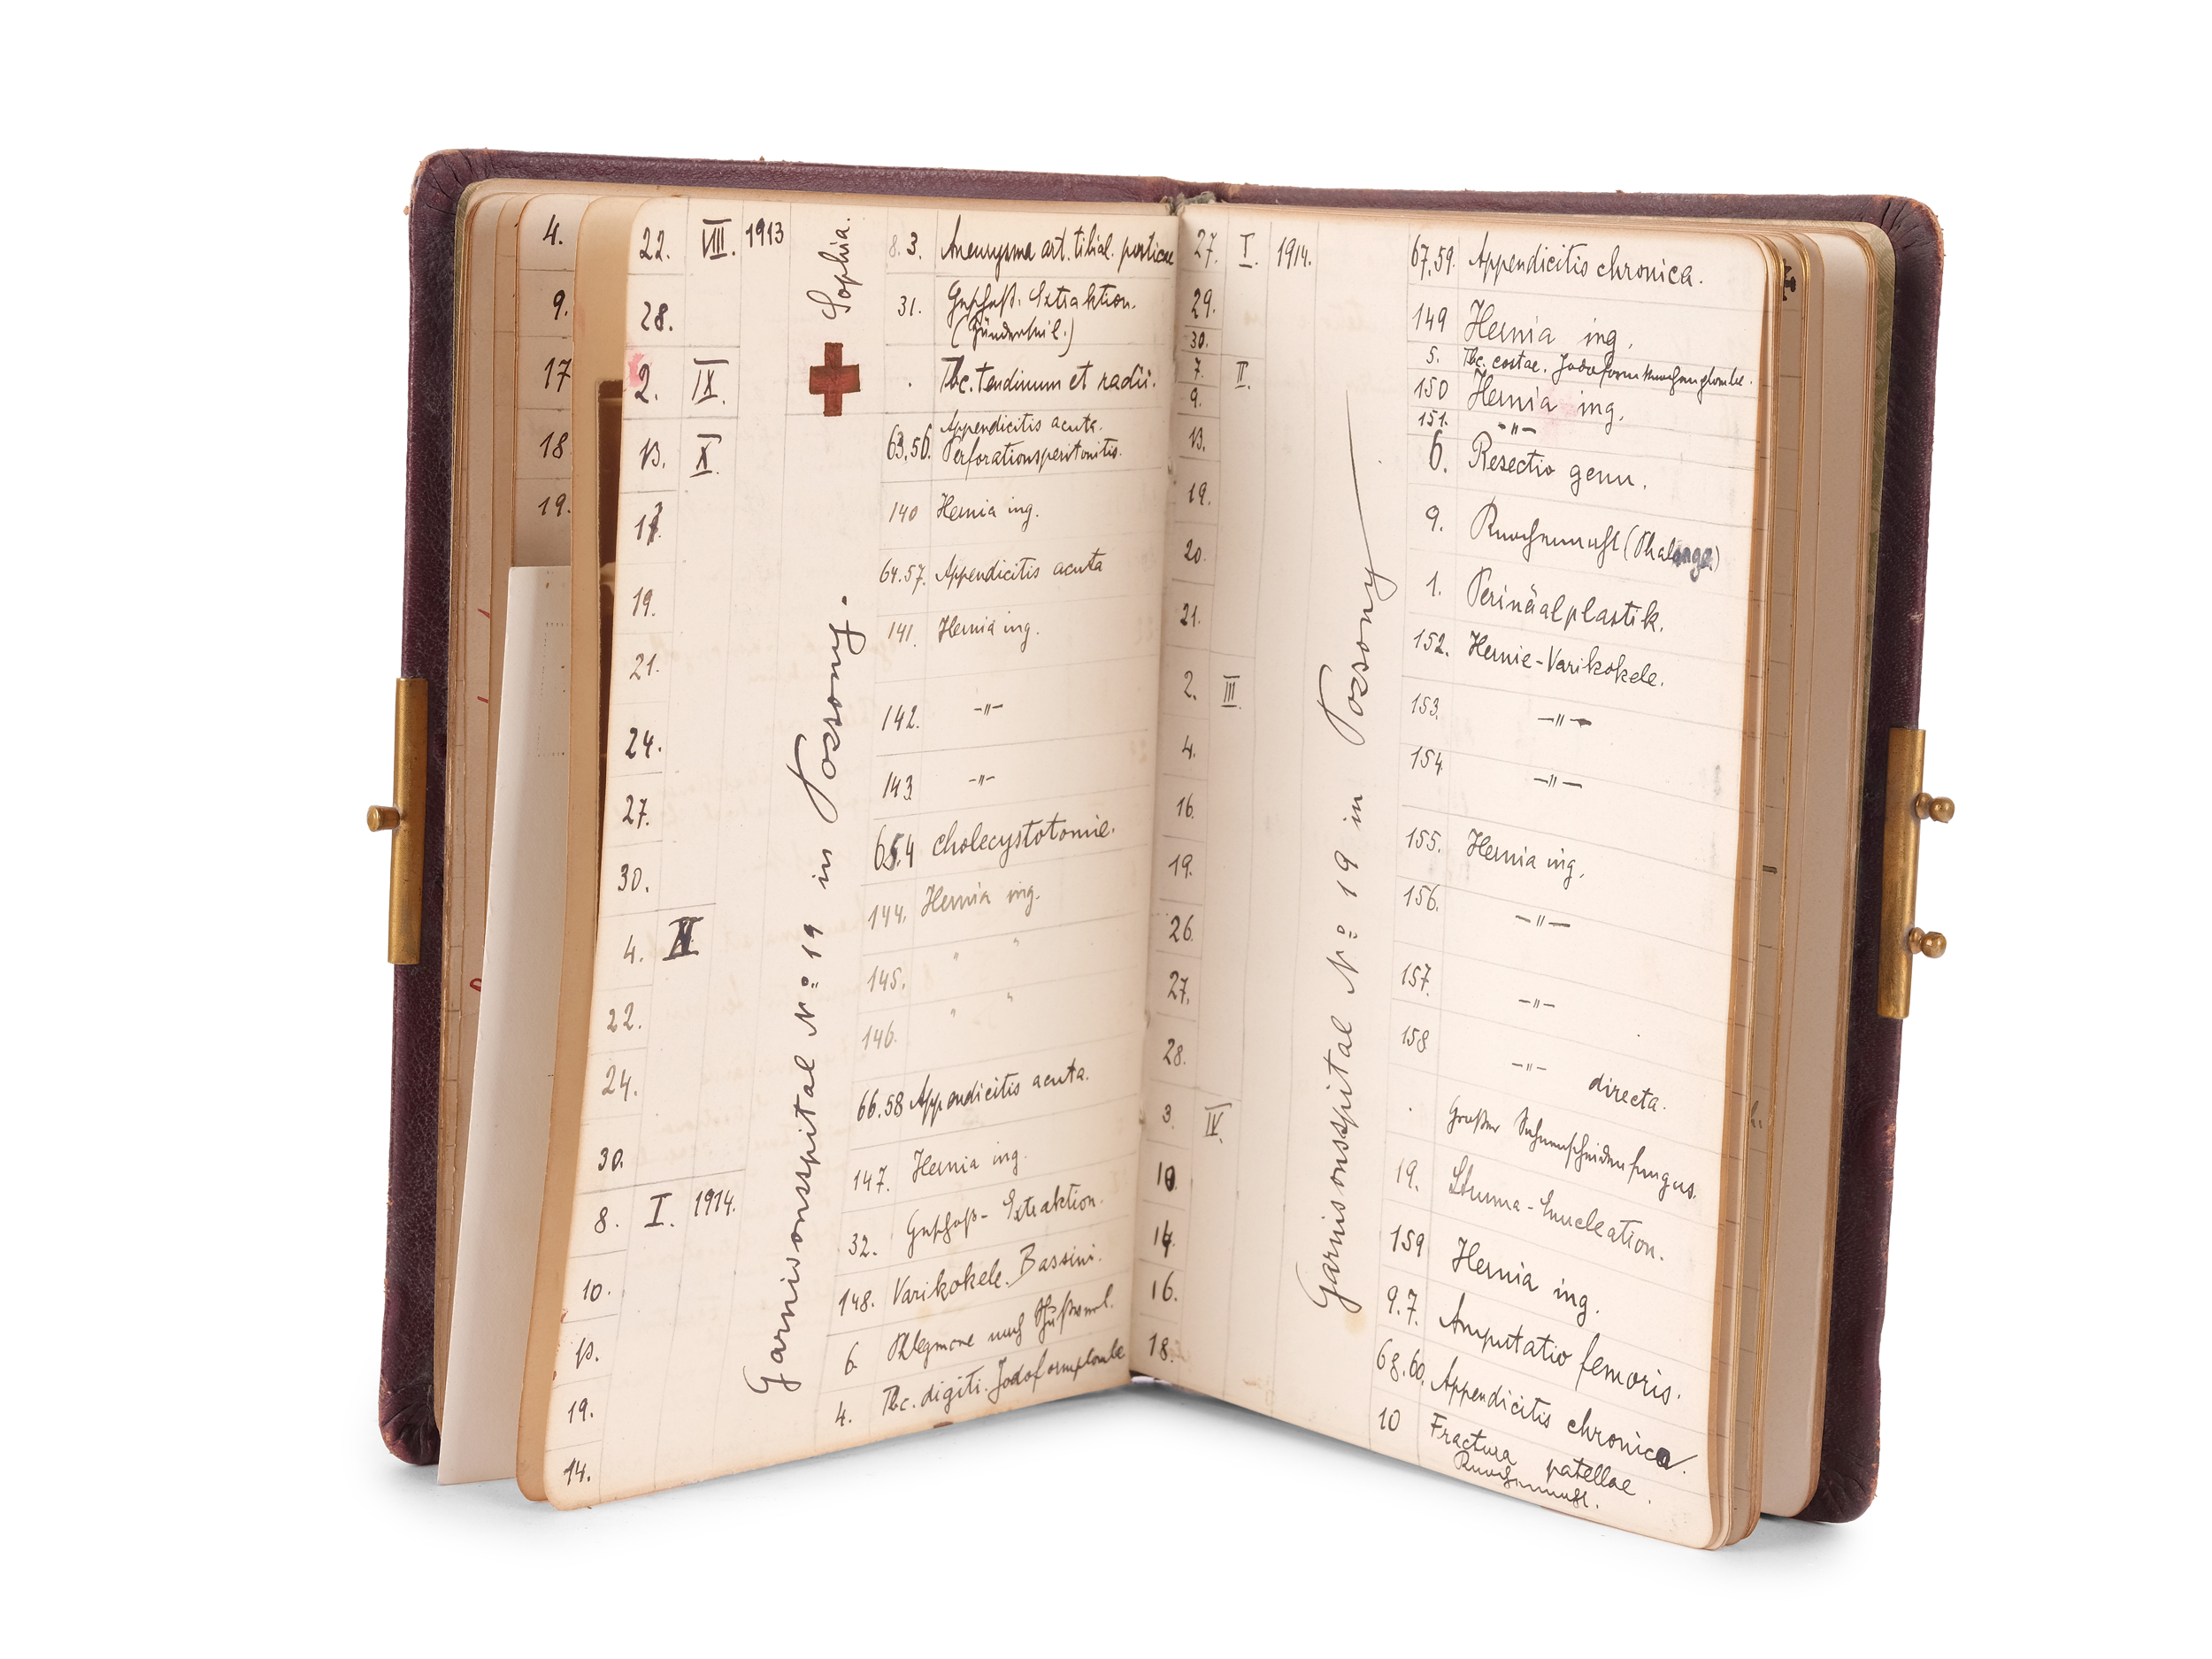 4.
9.
17
18
19.
22. VIII. 1913 8. 3. Aneurysma art. tibial. posticae
28. 31. Geschoß-Extraktion.
Sophia.
2. IX. Tbc. tendinum et radii.
13. X. 63.56. Appendicitis acuta.
Perforationsperitonitis.
17. 140 Hernia ing.
19. 64.57. Appendicitis acuta
21. 141. Hernia ing.
24. 142. -"-
27. 143 -"-
30. 65.4 Cholecystotomie.
4. 144. Hernia ing.
22. 145. " "
24. 146. " "
30. 66.58 Appendicitis acuta.
8. I. 1914. 147. Hernia ing.
10. 32. Geschoß-Extraktion.
13. 148. Varikokele. Bassini.
19. 6. Phlegmone nach
14. 4. Tbc. digiti. Jodoformplombe
Garnisonsspital No 19 in Pozsony.
27. I. 1914. 67.59. Appendicitis chronica.
29. 149 Hernia ing.
30. 5. Tbc. costae. Jodoformknochenplombe.
7. II. 150 Hernia ing.
9. 151. -"-
13. 6. Resectio genu.
19. 9. Knochennaht (Phalange)
20. 1. Perinäalplastik.
21. 152. Hernie-Varikokele.
2. III. 153. -"-
4. 154 -"-
16. 155. Hernia ing.
19. 156. -"-
26. 157. -"-
27. 158 -"- directa.
28. Großer Sehnenscheidenfungus.
3. IV. 19. Struma-Enucleation.
10. 159 Hernia ing.
14. 9.7. Amputatio femoris.
16. 68.60. Appendicitis chronica.
18. 10 Fractura patellae.
Knochennaht.
Garnisonsspital No 19 in Pozsony